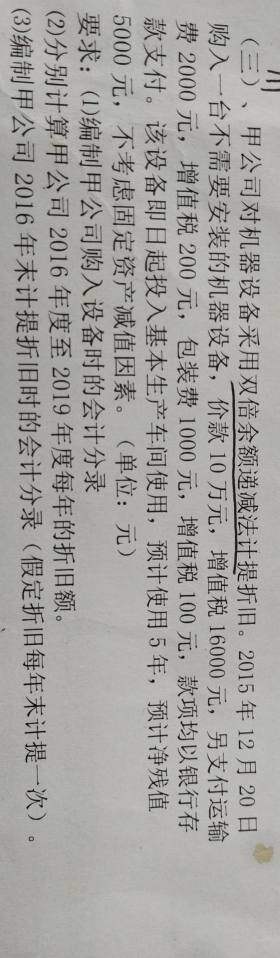 (三)、甲公司对机器设备采用双倍余额递减法计提折旧。2015年12月20日
购入一台不需要安装的机器设备，价款10万元，增值税16000元，另支付运输
费2000元，增值税200元，包装费1000元，增值税100元，款项均以银行存
款支付。该设备即日起投入基本生产车间使用，预计使用5年，预计净残值
5000元，不考虑固定资产减值因素。（单位：元）
要求：(1)编制甲公司购入设备时的会计分录
(2)分别计算甲公司2016年度至2019年度每年的折旧额。
(3)编制甲公司2016年末计提折旧时的会计分录（假定折旧每年末计提一次）。